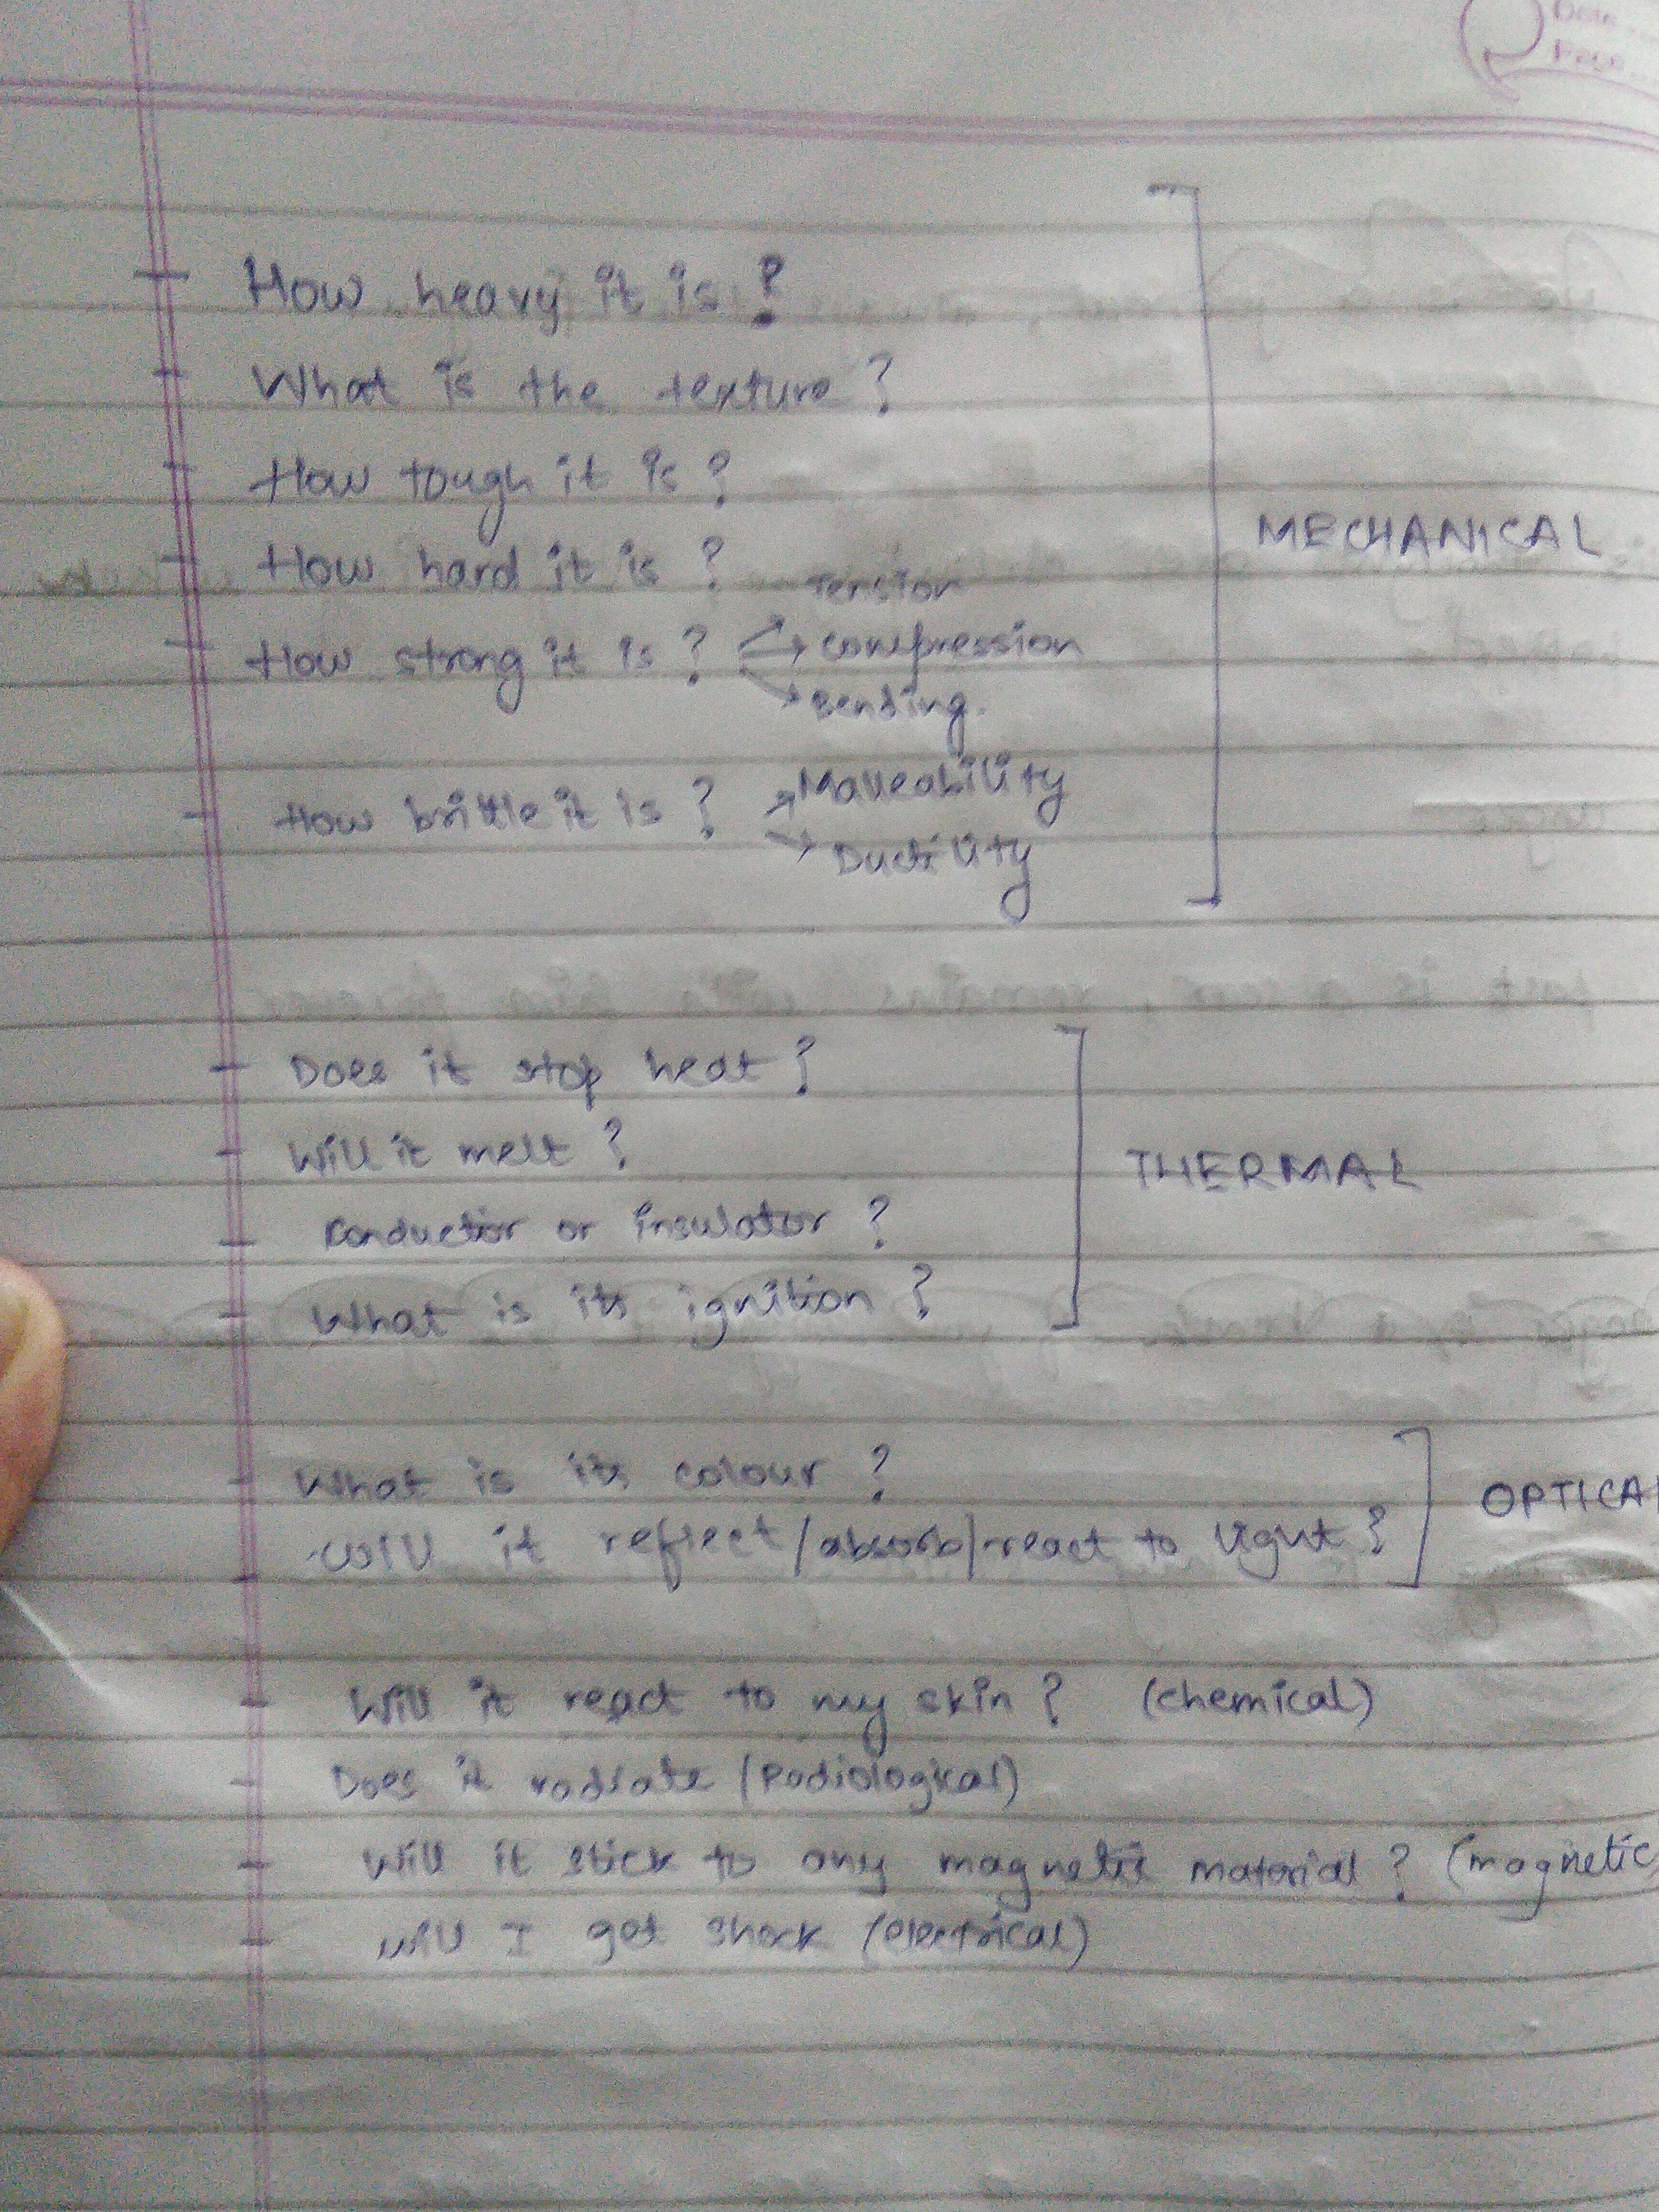 How heavy it is ?
What is the texture ?
How tough it is ?
How hard it is ?
MECHANICAL
Tension
How strong it is ? Compression
Bending.
How brittle it is ? Malleability
Ductility
Does it stop heat ?
Will it melt ?
THERMAL
Conductor or insulator ?
What is its ignition ?
What is its colour ?
OPTICAL
Will it reflect/absorb/react to light ?
Will it react to my skin ? (chemical)
Does it radiate (Radiological)
Will it stick to any magnetic material ? (magnetic)
Will I get shock (electrical)